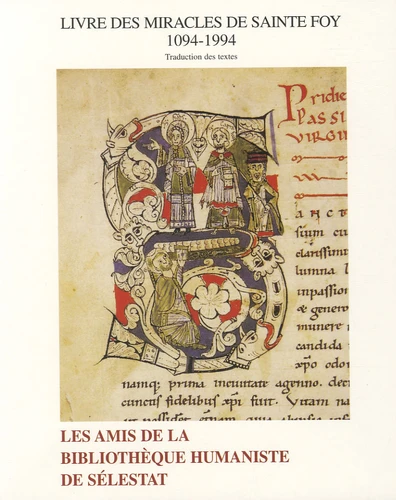 LIVRE DES MIRACLES DE SAINTE FOY
1094-1994
Traduction des textes
Pridie
PASSI
VIRGIN
SANCT
sium cu
clarissim
lumina
inpassion
& genero
munere
candida
xpo odo
namq; prima incuitate agenno. de
cunctis fidelibus xpi fuit. Vitam na
LES AMIS DE LA
BIBLIOTHÈQUE HUMANISTE
DE SÉLESTAT